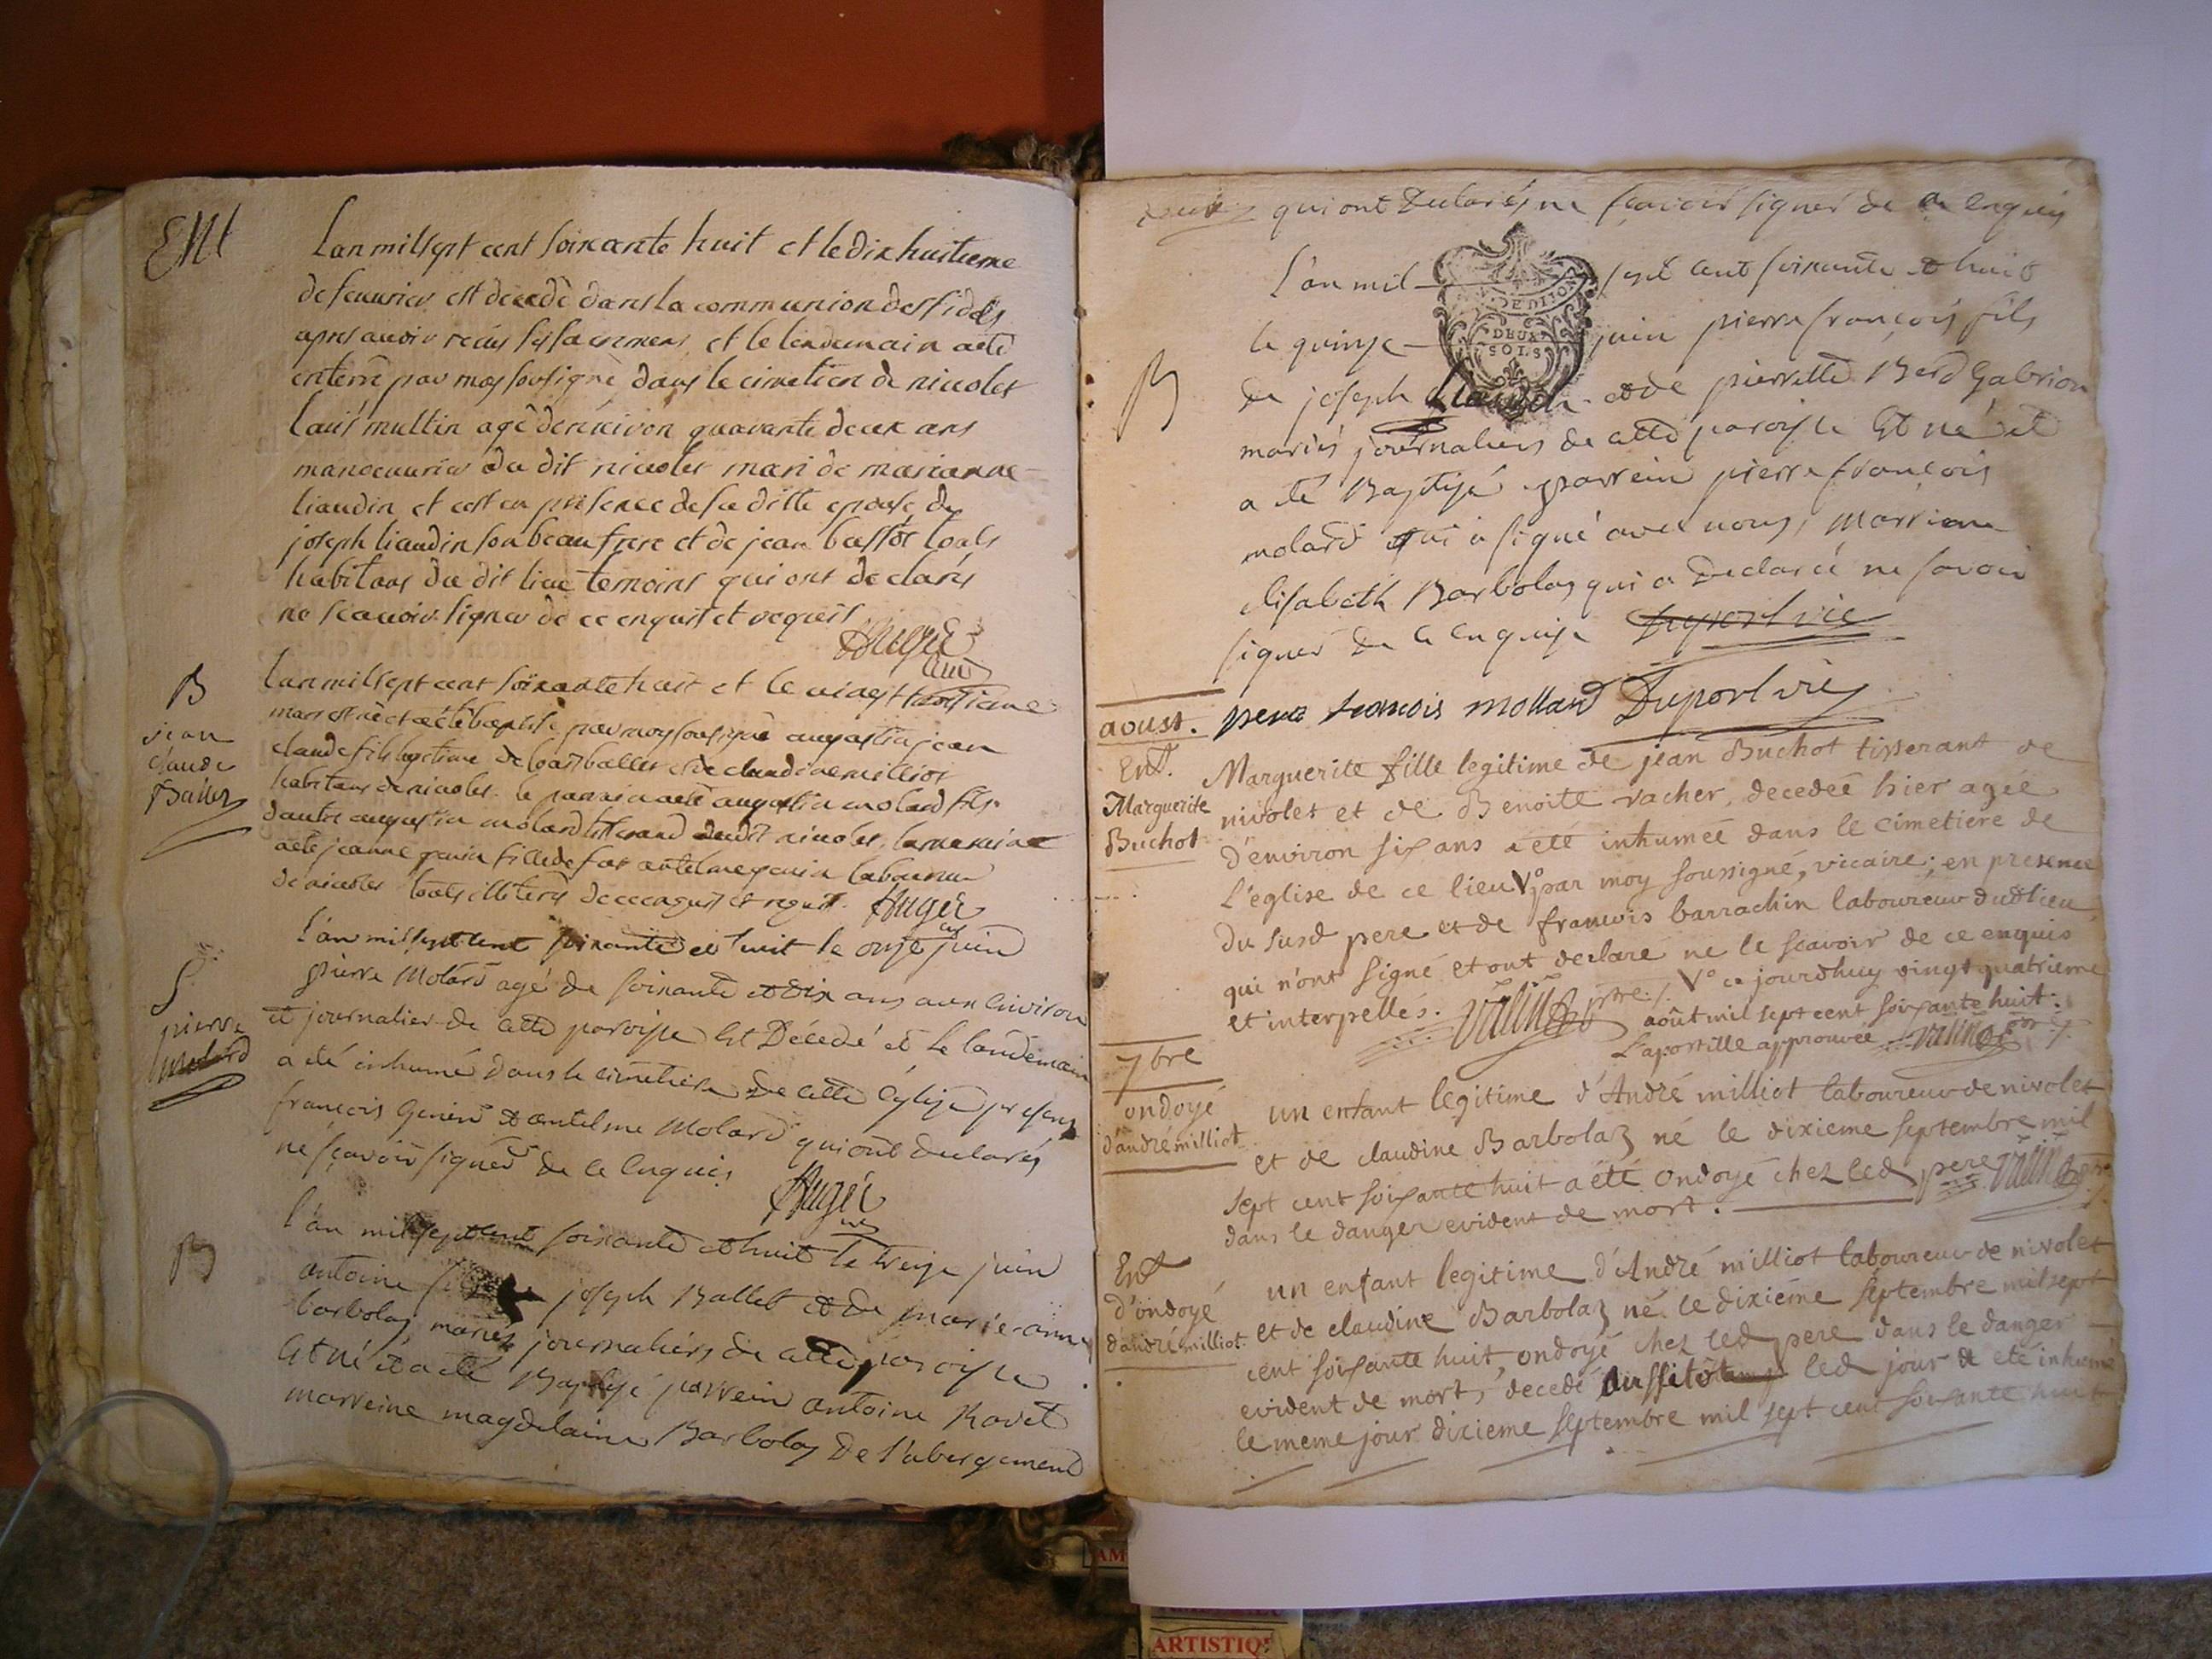 Ent
Lan mil sept cent soixante huit et le dix huitieme
de feuurier est décedé dans la communion des fideles
apres auoir recus ses sacremens et le lendemain a eté
enterré par moy sousigné dans le cimetiere de niuolet
Louis multin agé denuiron quarante deux ans
manoeuurier du dit niuolet mari de marianne
liaudin et cest en presence de sa ditte epouse de
joseph liaudin son beau frere et de jean bassot touts
habitans du dit lieu temoins qui ont declarés
ne scauoir signer de ce enquis et requis
Augér
curé
B
jean
claude
Ballet
lan mil sept cent soixante huit et le vingt
mars est né et a eté baptisé par moy sousigné augustin jean
claude fils legitime de ballet et de claudine milliot
habitans de niuolet le parrain a eté augustin molard fils
dautre augustin molard tisserand dudit niuolet, la marraine
a eté jeanne fille de feu antelme laboureur
de niuolet touts illiterés de ce enquis et requis. Augér
curé
S
pierre
molard
L'an mil sept cent soixante et huit le onze juin
pierre Molard agé de soixante et dix ans aux environ
et journalier de cette paroisse Est Décedé et le landemain
a eté inhumé dans le cimetiere de cette Eglise presens
francois et antelme Molard qui ont declarés
ne sçavoir signer de ce Enquis
Augér
curé
B
l'an mil sept cent soixante et huit le treize juin
antoine joseph Ballet et de marie-anne
barbolaz, mariés journaliers de cette paroisse
Est né et a eté Baptisé parrein antoine Ravet
marreine magdelaine Barbolaz De l'abergement
qui ont Declarés ne sçavoir signer de ce enquis
L'an mil sept cent soixante et huit
DE DIJON
DEUX
SOLS
B
le quinze juin pierre françois fils
de joseph et de pierrette Berd Gabrion
mariés journaliers de cette paroisse Est né et
a eté Baptisé parrein pierre françois
molard qui a signé avec nous, Marreine
elisabeth Barbolaz qui a Declaré ne savoir
signer de ce Enquise Duport vic
francois mollard Duport vic
aoust.
Ent.
Marguerite
Buchot
Marguerite fille legitime de jean Buchot tisserant de
nivolet et de Benoite vacher, decedeé hier ageé
d'environ six ans a eté inhumeé dans le cimetiere de
l'église de ce lieu V° par moy soussigné, vicaire; en presence
du susd pere et de francois barrachin laboureur dudt lieu
qui n'ont signé et ont declaré ne le scavoir de ce enquis
et interpellés. Vallin ptre ./. V° ce jourdhuy vingt quatrieme
août mil sept cent soixante huit.
L'apostille approuvée Vallin ptre ./.
7bre
ondoyé
d'andré milliot
un enfant legitime d'André milliot laboureur de nivolet
et de claudine Barbolaz né le dixieme septembre mil
sept cent soixante huit a eté ondoyé chez led pere Vallin ptre
dans le danger evident de mort.
Ent
d'ondoyé
d'andré milliot
un enfant legitime d'André milliot laboureur de nivolet
et de claudine Barbolaz né le dixieme septembre mil sept
cent soixante huit, ondoyé chez led pere dans le danger
evident de mort, decedé aussitôt led jour a eté inhumé
le meme jour dixieme septembre mil sept cent soixante huit
AM
ARTISTIQ